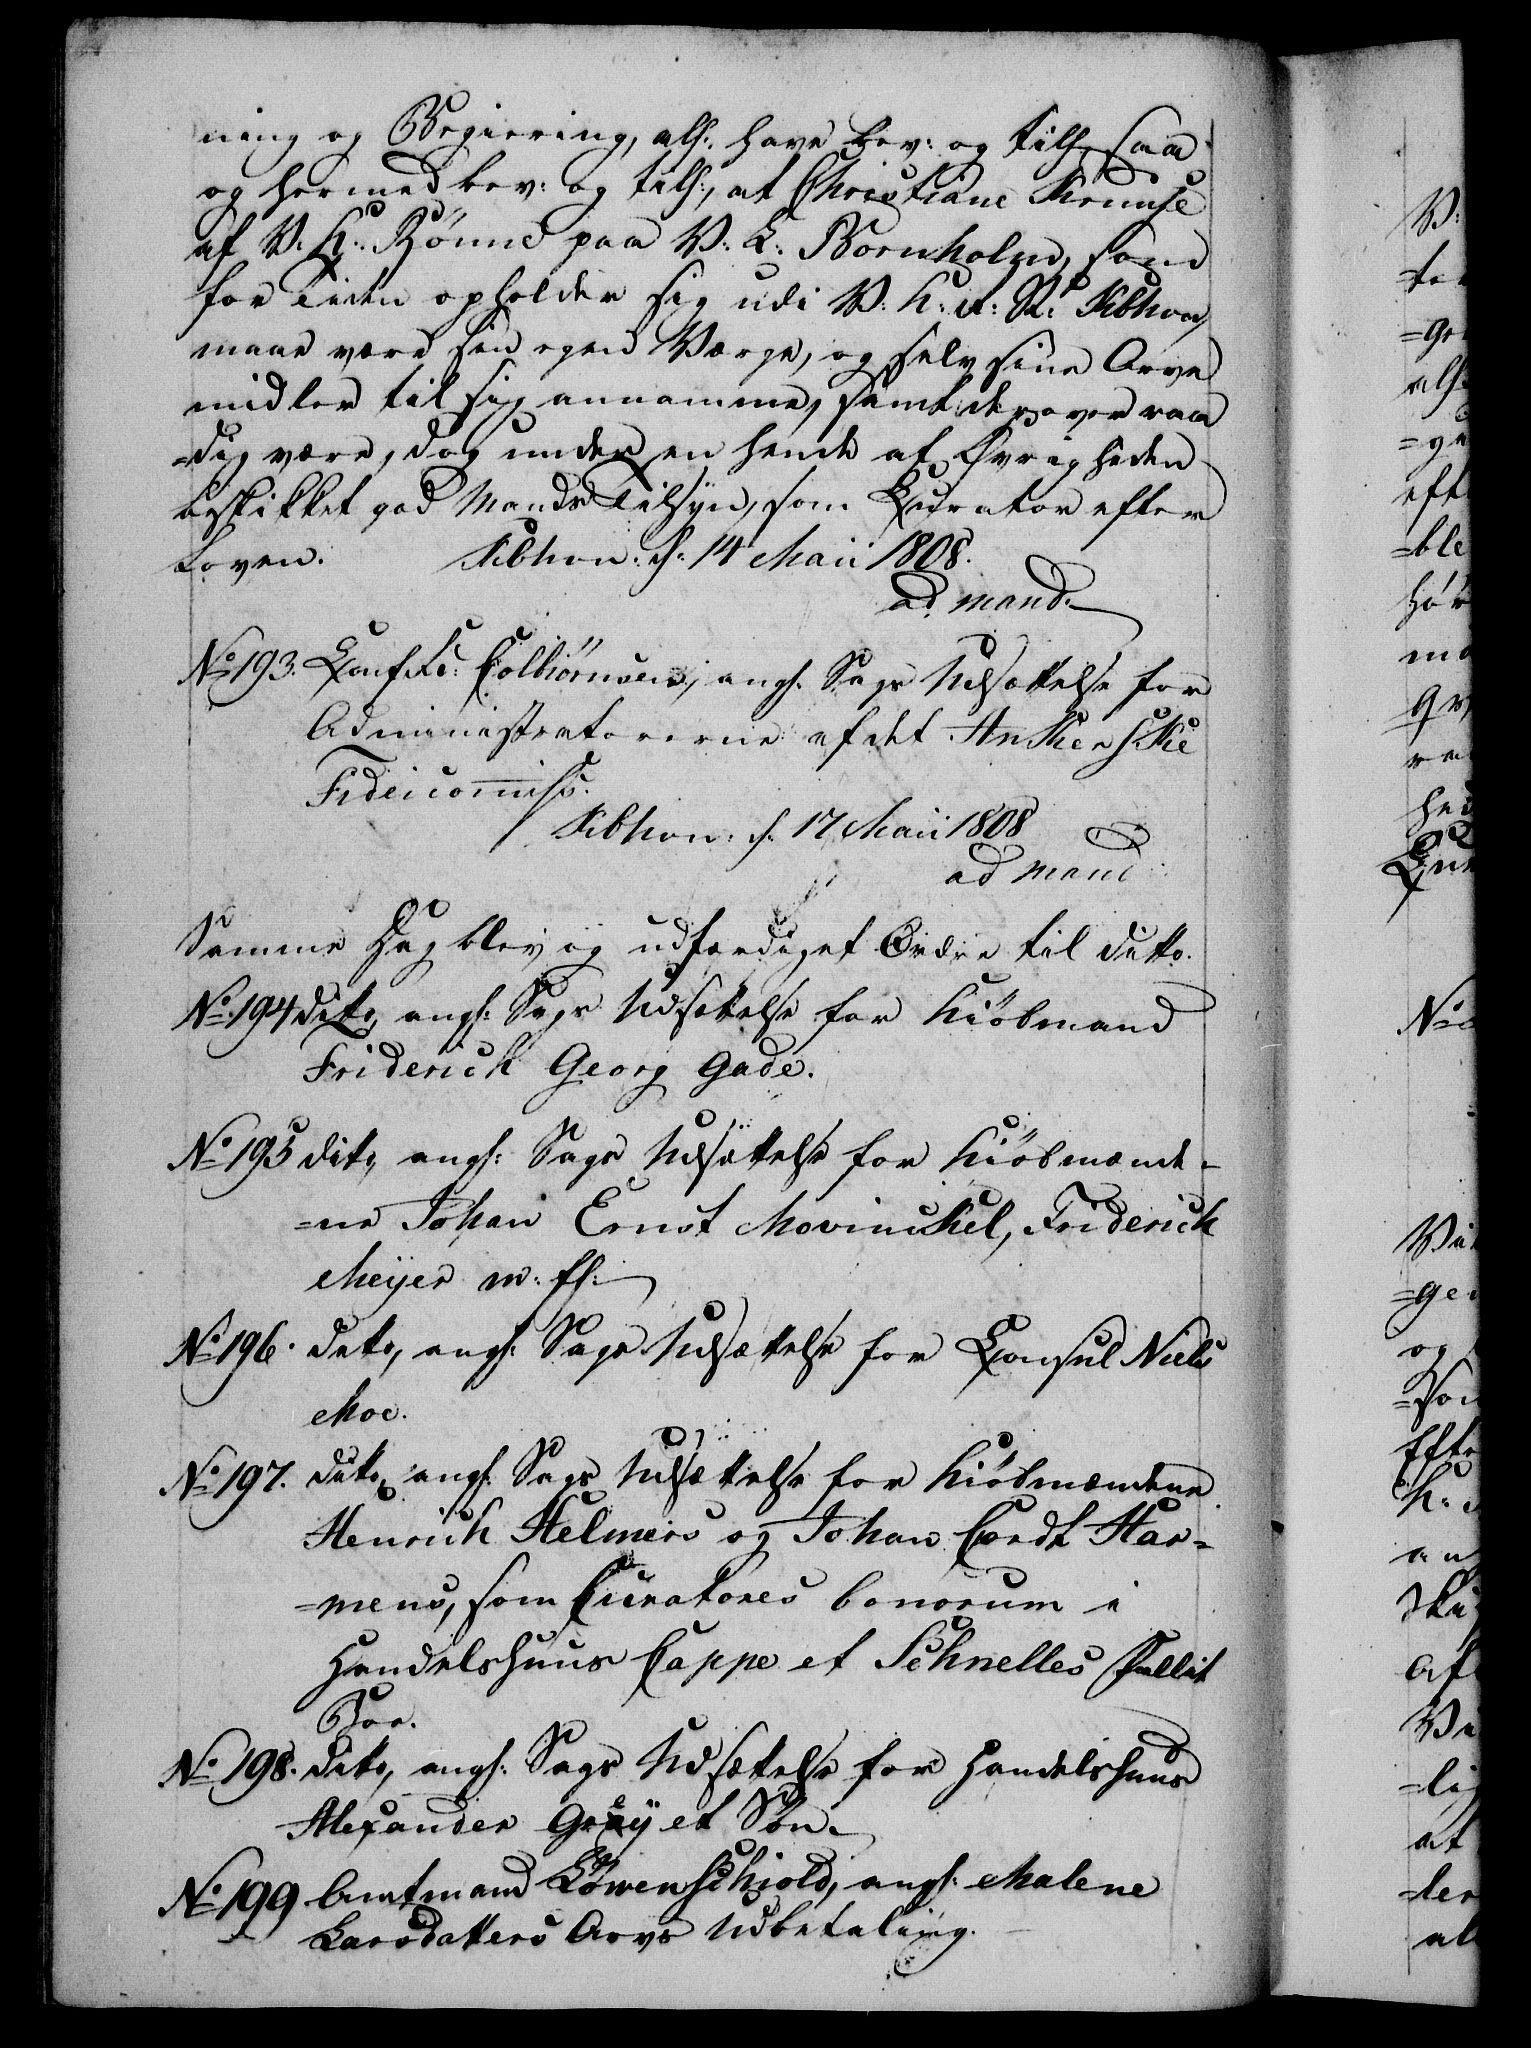 ning og Begiering, alls: have bev: og tills, saa
og hermed bev: og tills:, at Christiane Kruuse
af V. K: Rønne paa V: L: Bornholm, som
for Tiden opholder sig udi V: K: u: R: Kbhvn,
maae være sin egen Værge, og selv sine Arve
midler til sig annamme, samt derover raa
=dig være, dog under en hende af Øvrigheden
beskikket god Mands Tilsyn, som Curator efter
Loven. Kbhvn: d: 14 Maii 1808.
ad mand.
No 193. Conf. R: Colbiørnsen, angl. Sags Udsættelse for
Administratorerne af det Ankerske
Fideicommiss.
Kbhvn: d. 17 Maii 1808
ad mand
Samme Dag blev og udfærdiget Ordre til ditto.
No 194 dito, angl: Sags Udsættelse for Kiøbmand
Friderich Georg Gade.
No 195 dito, angl: Sags Udsættelse for Kiøbmænde=
=ne Johan Ernst Movinckel, Friderich
Meÿer m: fl:
No 196. dito, angl: Sags Udsættelse for Consul Niels
Moe.
No 197. ditto, angl: Sags Udsættelse for Kiøbmændene
Henrich Helmers og Johan Cordt Har=
=mens, som Curatores bonorum i
Handelshuus Cappe et Schnelles Fallit
Boe.
No 198. dito, angl: Sags Udsættelse for Handelshuus
Alexander Greÿ et Søn.
No 199 Amtmand Løwenschiold, angl: Malene
Larsdatters Arvs Udbetaling.